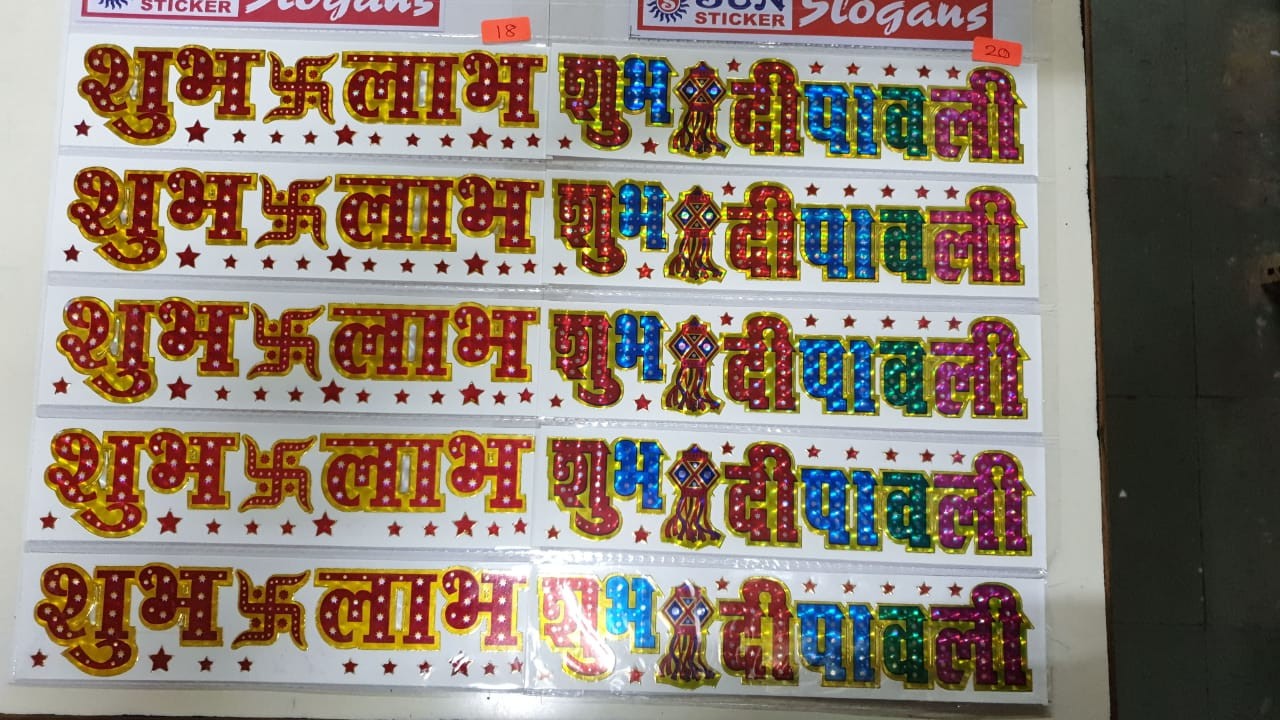 SUN STICKER Slogans
SUN STICKER Slogans
18
20
शुभ लाभ
शुभ दीपावली
शुभ लाभ
शुभ दीपावली
शुभ लाभ
शुभ दीपावली
शुभ लाभ
शुभ दीपावली
शुभ लाभ
शुभ दीपावली